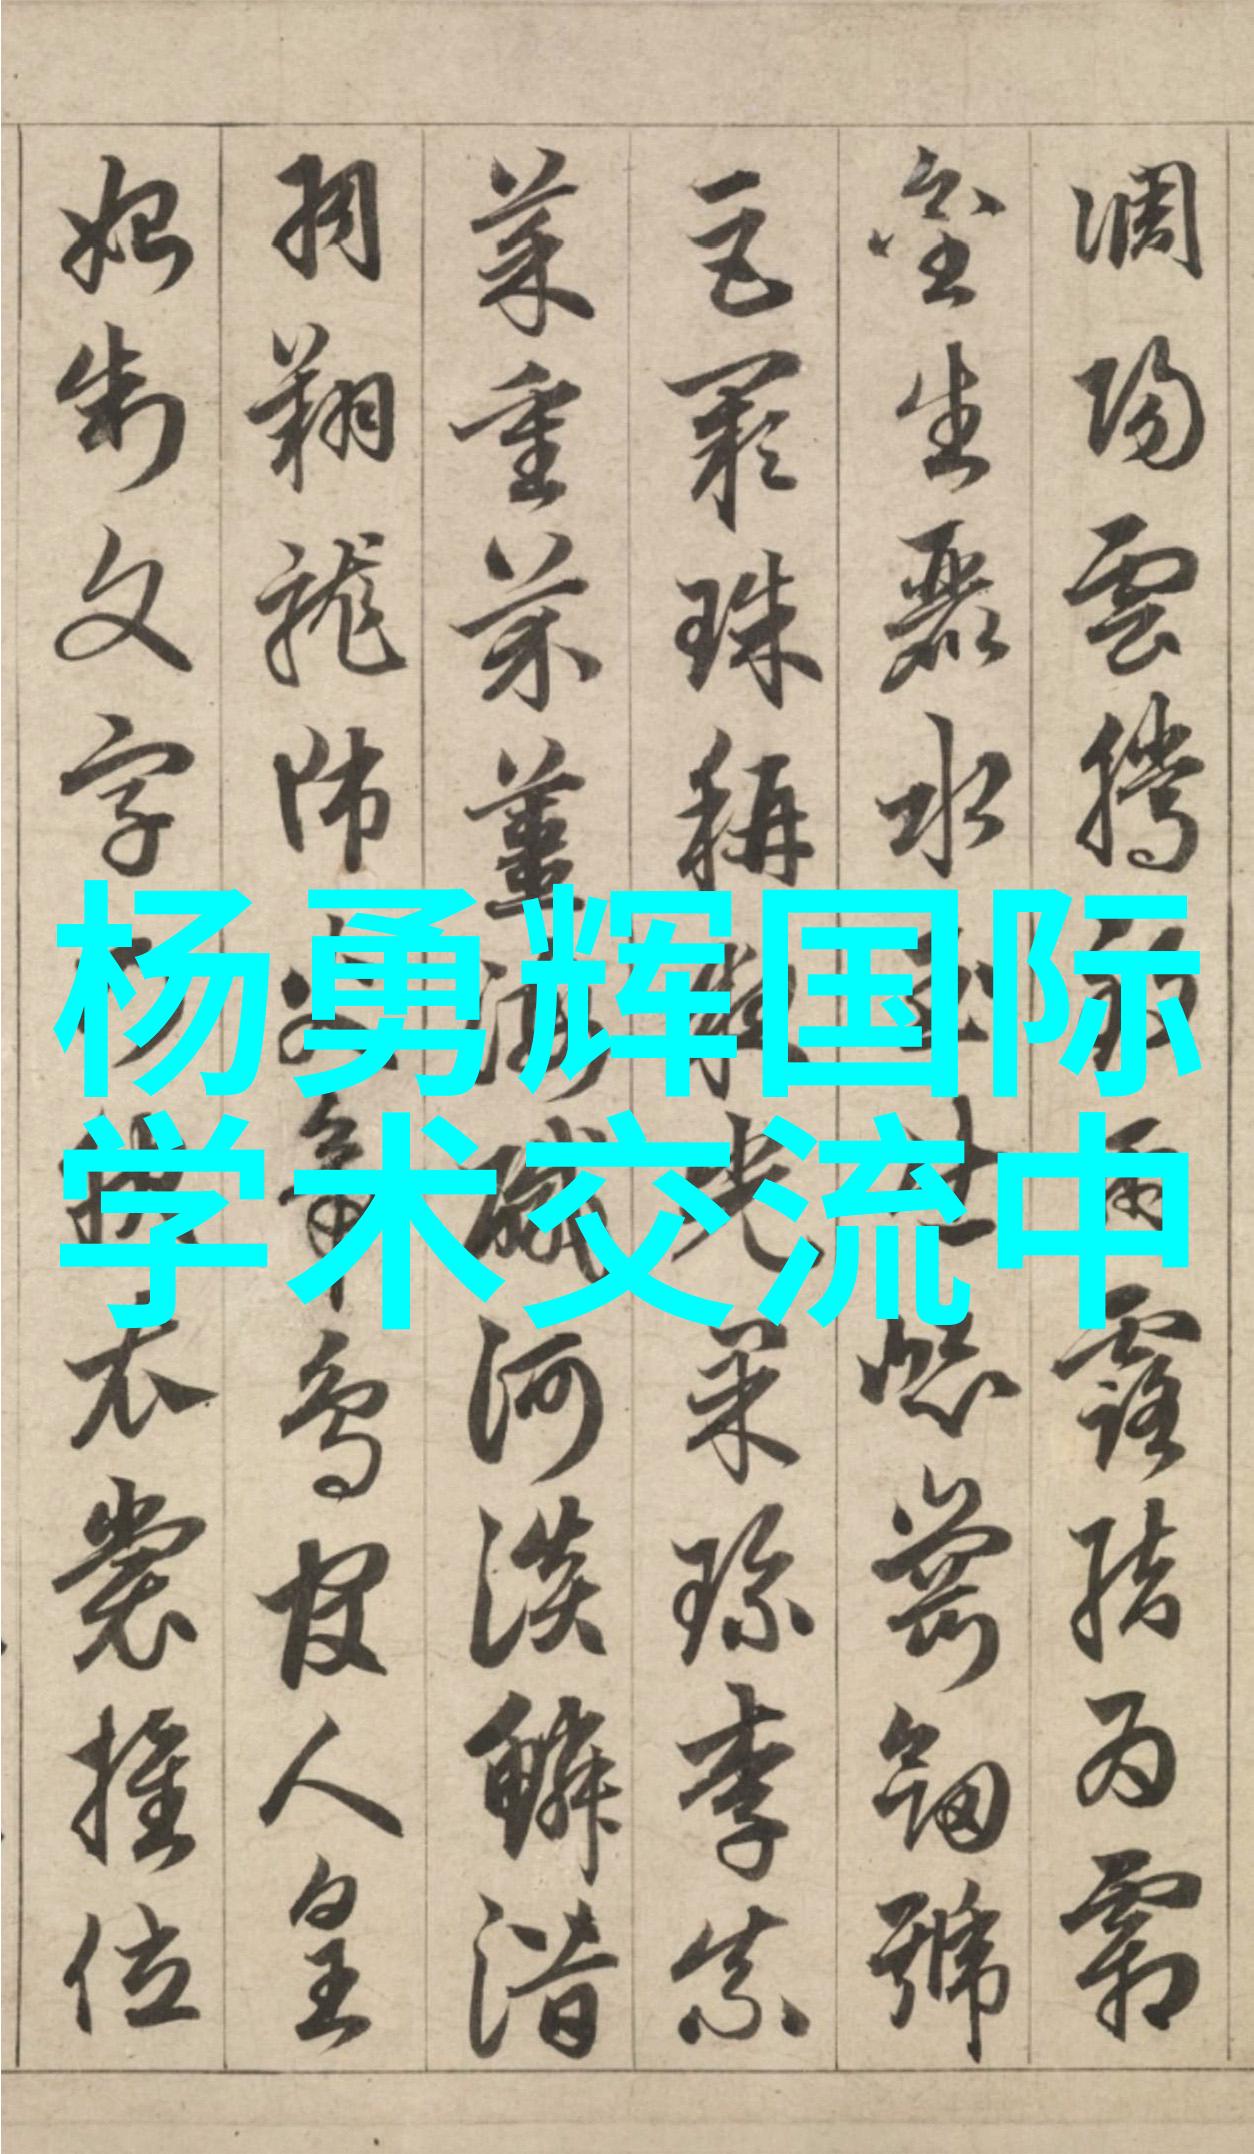 調陽雲騰致雨露結為霜
金生麗水玉出崑崗劍號
巨闕珠稱夜光果珍李柰
菜重芥薑海鹹河淡鱗潛
羽翔龍師火帝鳥官人皇
始制文字乃服衣裳推位
杨勇辉国际
学术交流中